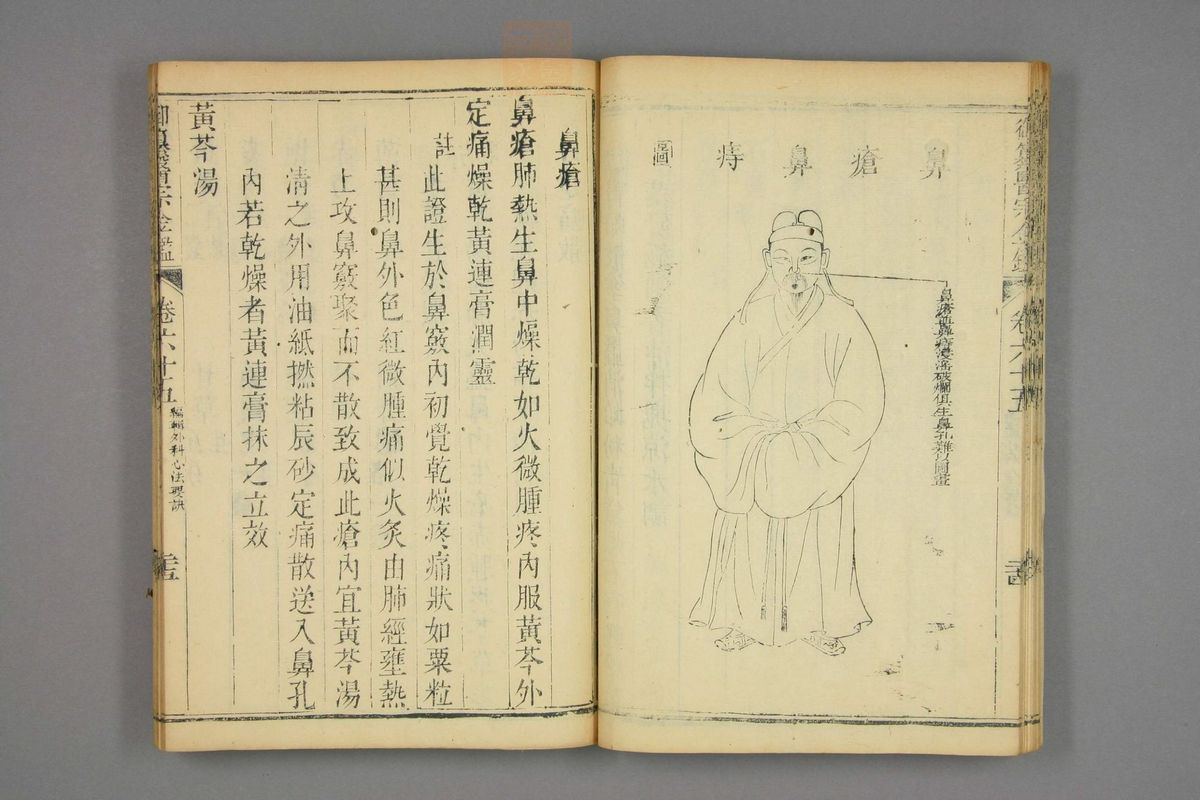 御纂醫宗金鑑
卷六十五
鼻瘡鼻痔圖
鼻瘡鼻痔浸淫破爛俱生鼻孔難以圖畫
鼻瘡
鼻瘡肺熱生鼻中燥乾如火微腫疼內服黃芩外
定痛燥乾黃連膏潤靈
註此證生於鼻竅內初覺乾燥疼痛狀如粟粒
甚則鼻外色紅微腫痛似火炙由肺經壅熱
上攻鼻竅聚而不散致成此瘡內宜黃芩湯
清之外用油紙撚粘辰砂定痛散送入鼻孔
內若乾燥者黃連膏抹之立效
黃芩湯
御纂醫宗金鑑
卷六十五
編輯外科心法要訣